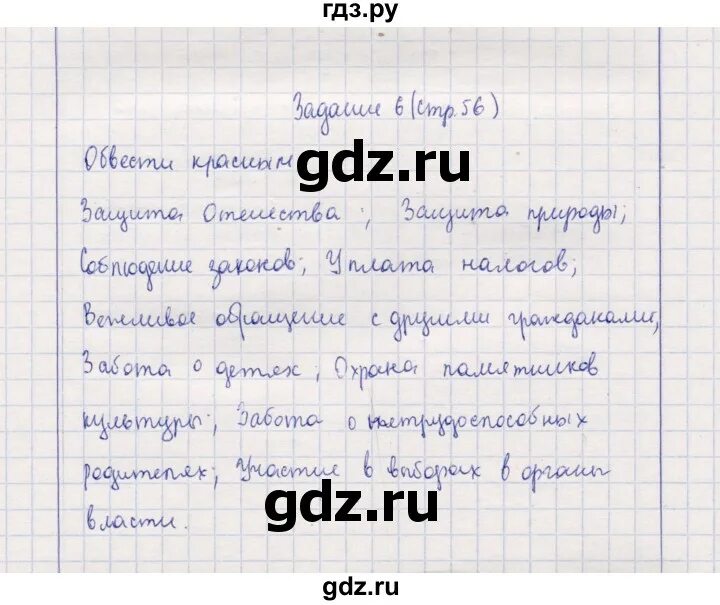 гдз.ру
Задание 6 (стр. 56)
Обвести красным
gdz.ru
Защита Отечества; Защита природы;
Соблюдение законов; Уплата налогов;
Вежливое обращение с другими гражданами;
Забота о детях; Охрана памятников
культуры; Забота о нетрудоспособных
родителях; Участие в выборах в органы
власти.
gdz.ru
gdz.ru